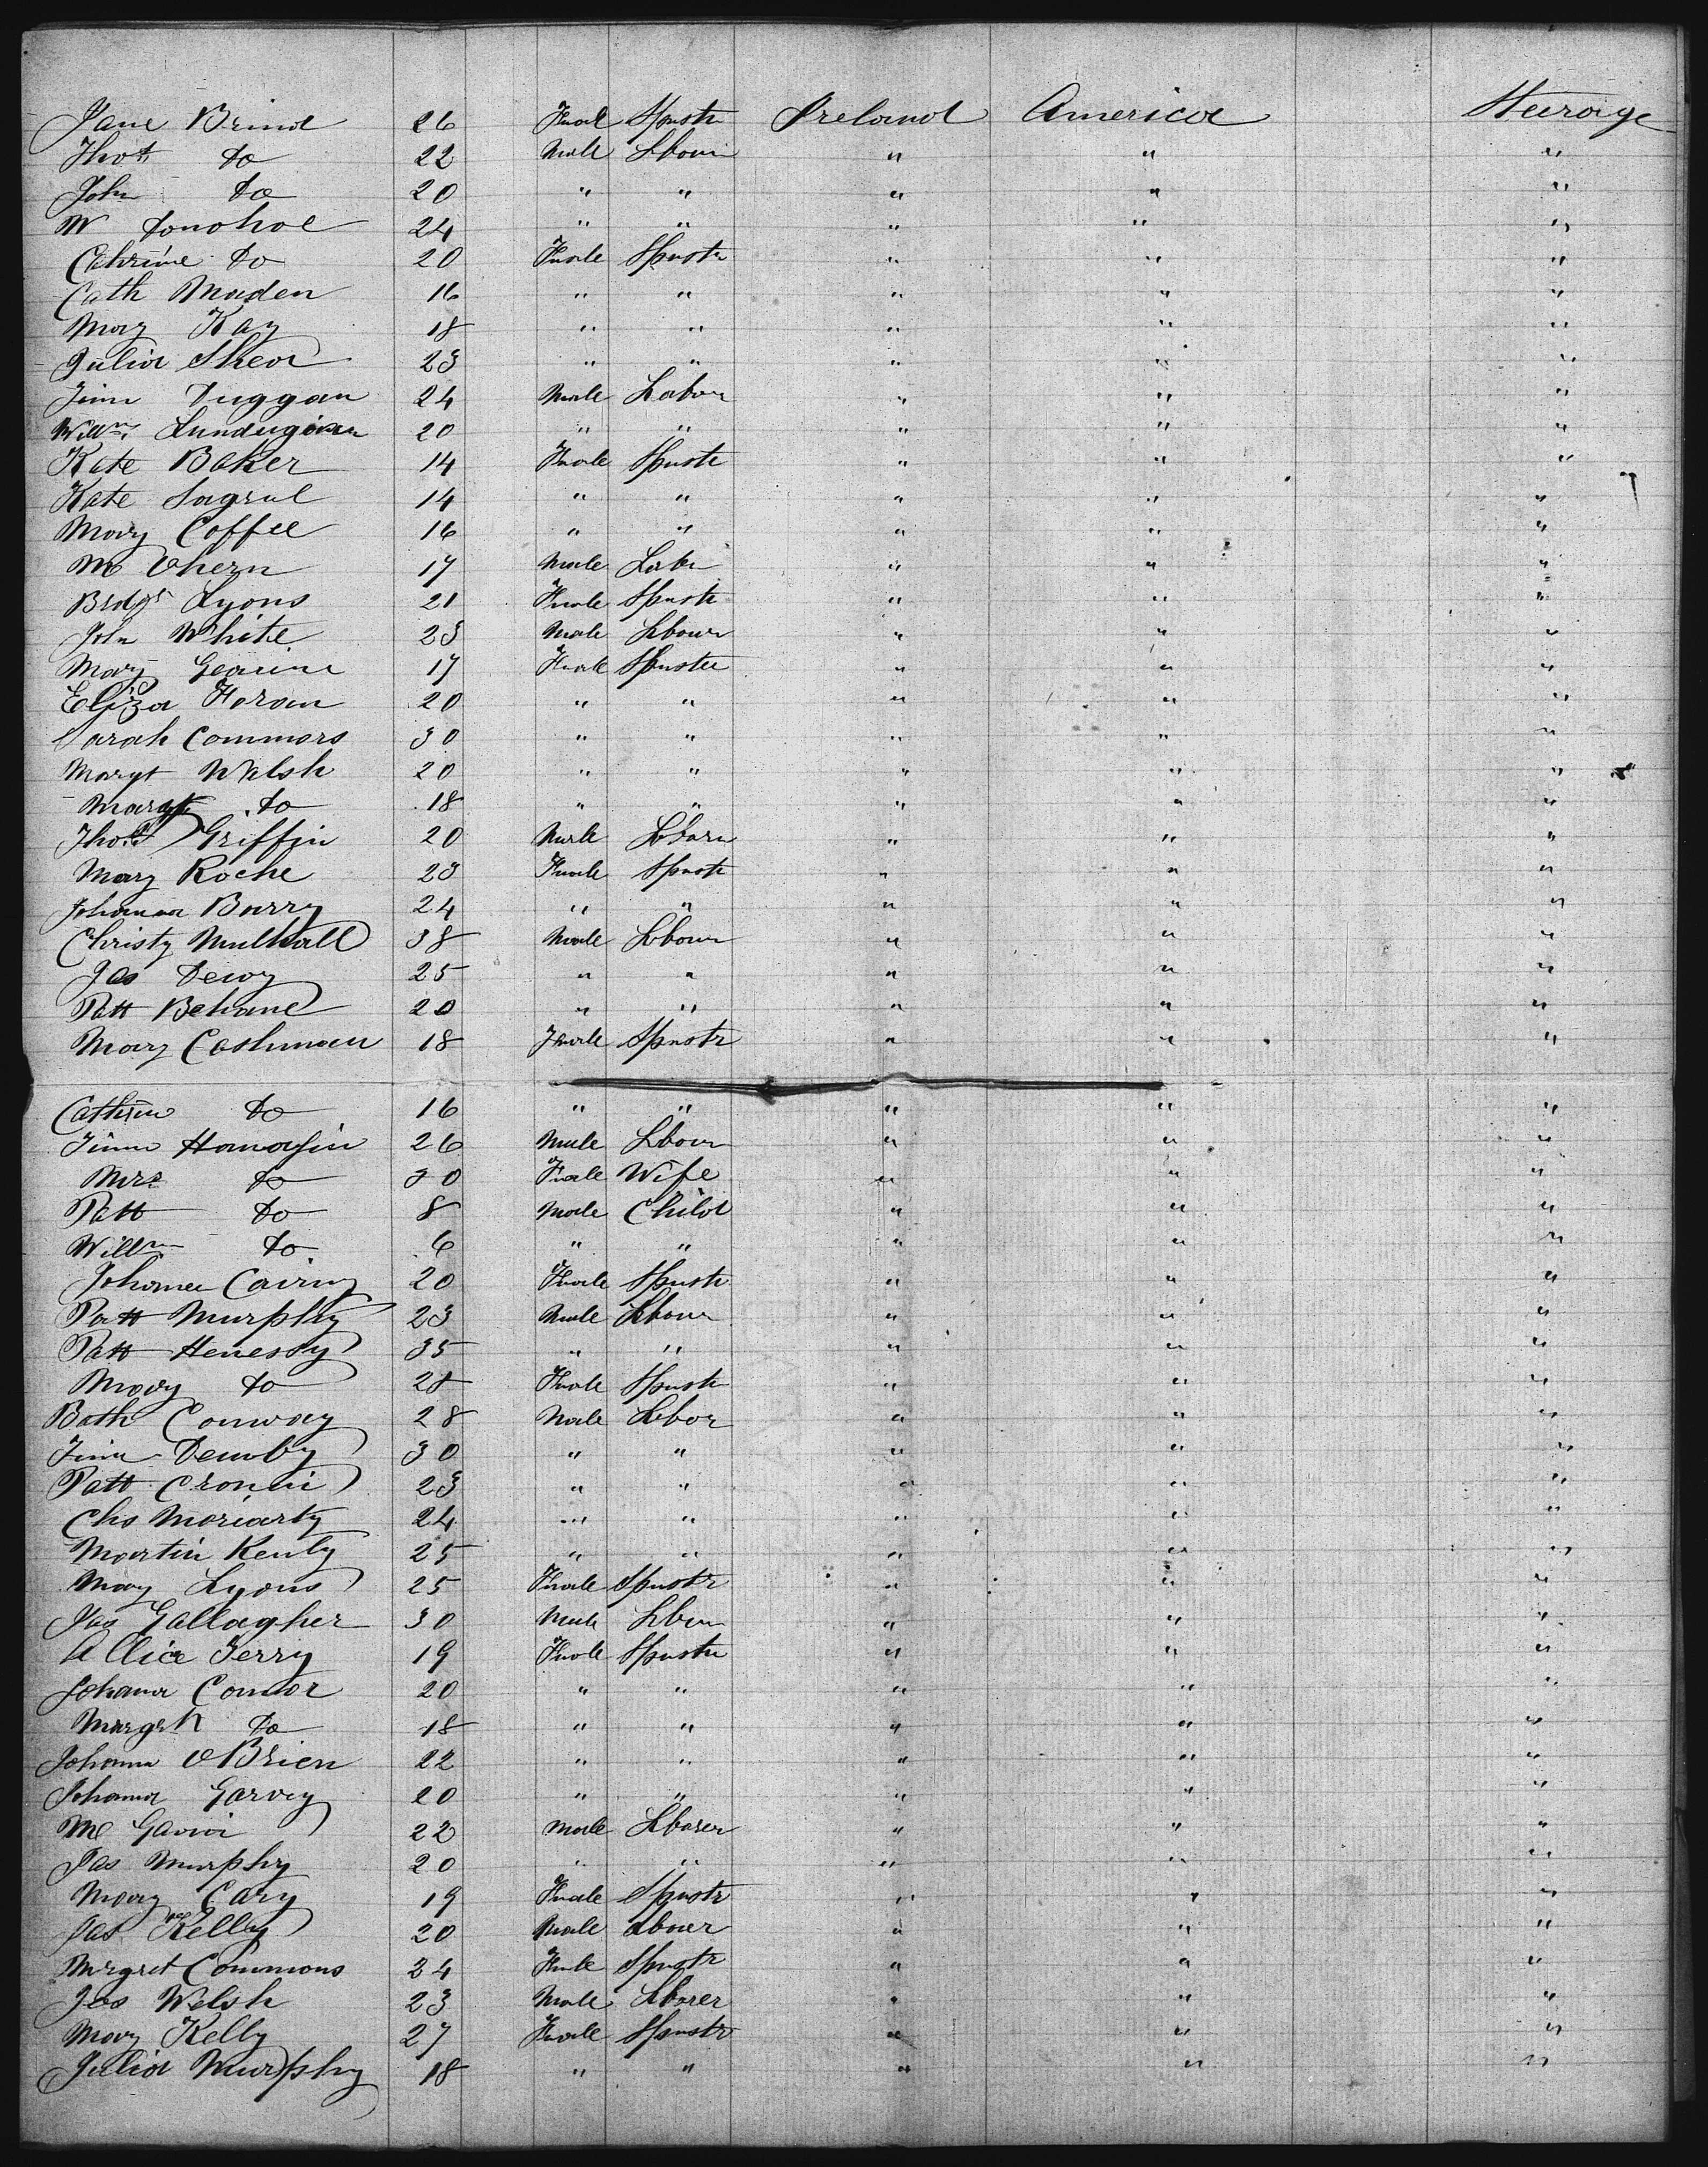 Jane Brind 26 Fmal Spnstr Ireland America Steerage
Thos do 22 Male Lbour " " "
John do 20 " " " " "
W Donohoe 24 " " " " "
Cathrine do 20 Fmale Spnstr " " "
Cath Maden 16 " " " " "
Mary Kay 18 " " " " "
Julia Shea 23 " " " " "
Timm Duggan 24 Male Labour " " "
Willm 20 " " " " "
Kate Baker 14 Fmale Spnstr " " "
Kate 14 " " " " "
Mary Coffee 16 " " " " "
M Ohern 17 Male Labr " " "
Bridgt Lyons 21 Fmale Spnstr " " "
John White 23 Male Lbour " " "
Mary 17 Fmale Spnster " " "
Eliza Horan 20 " " " " "
Sarah Commors 30 " " " " "
Margt Walsh 20 " " " " "
do 18 " " " " "
Thos Griffin 20 Male " " "
Mary Roche 23 Fmale Spnstr " " "
Johanna Barry 24 " " " " "
Christy Mulhall 38 Male Lbour " " "
Jas 25 " " " " "
Patt Behane 20 " " " " "
Mary Cashman 18 Fmale Spnstr " " "
Cathrin do 16 " " " " "
Timm 26 Male Lbour " " "
Mrs do Fmale Wife " " "
Patt do 8 Male Child " " "
Willm do 6 " " " " "
Johanna 20 Fmale Spnstr " " "
Patt Murphy 23 Male Lbour " " "
Patt Henessy 35 " " " " "
Mary do 28 Fmale Spnstr " " "
Conway 28 Male Lbor " " "
Timm 30 " " " " "
Patt Cronin 23 " " " " "
Chs Moriarty 24 " " " " "
Martin 25 " " " " "
Mary Lyons 25 Fmale Spnstr " " "
Jas Gallagher 30 Male Lbour " " "
Allice Terry 19 Fmale Spnstr " " "
Johana Connor 20 " " " " "
Margrt do 18 " " " " "
Johanna OBrien 22 " " " " "
Johanna Garvey 20 " " " " "
Ml 22 Male Lborer " " "
Jas Murphy 20 " " " " "
Mary Cary 19 Fmale Spnstr " " "
Jas Kelly 20 Male Lbouer " " "
Mrgret Commons 24 Fmale Spnstr " " "
Jas Welsh 23 Male Lborer " " "
Mary Kelly 27 Fmale Spnstr " " "
Julia Murphy 18 " " " " "